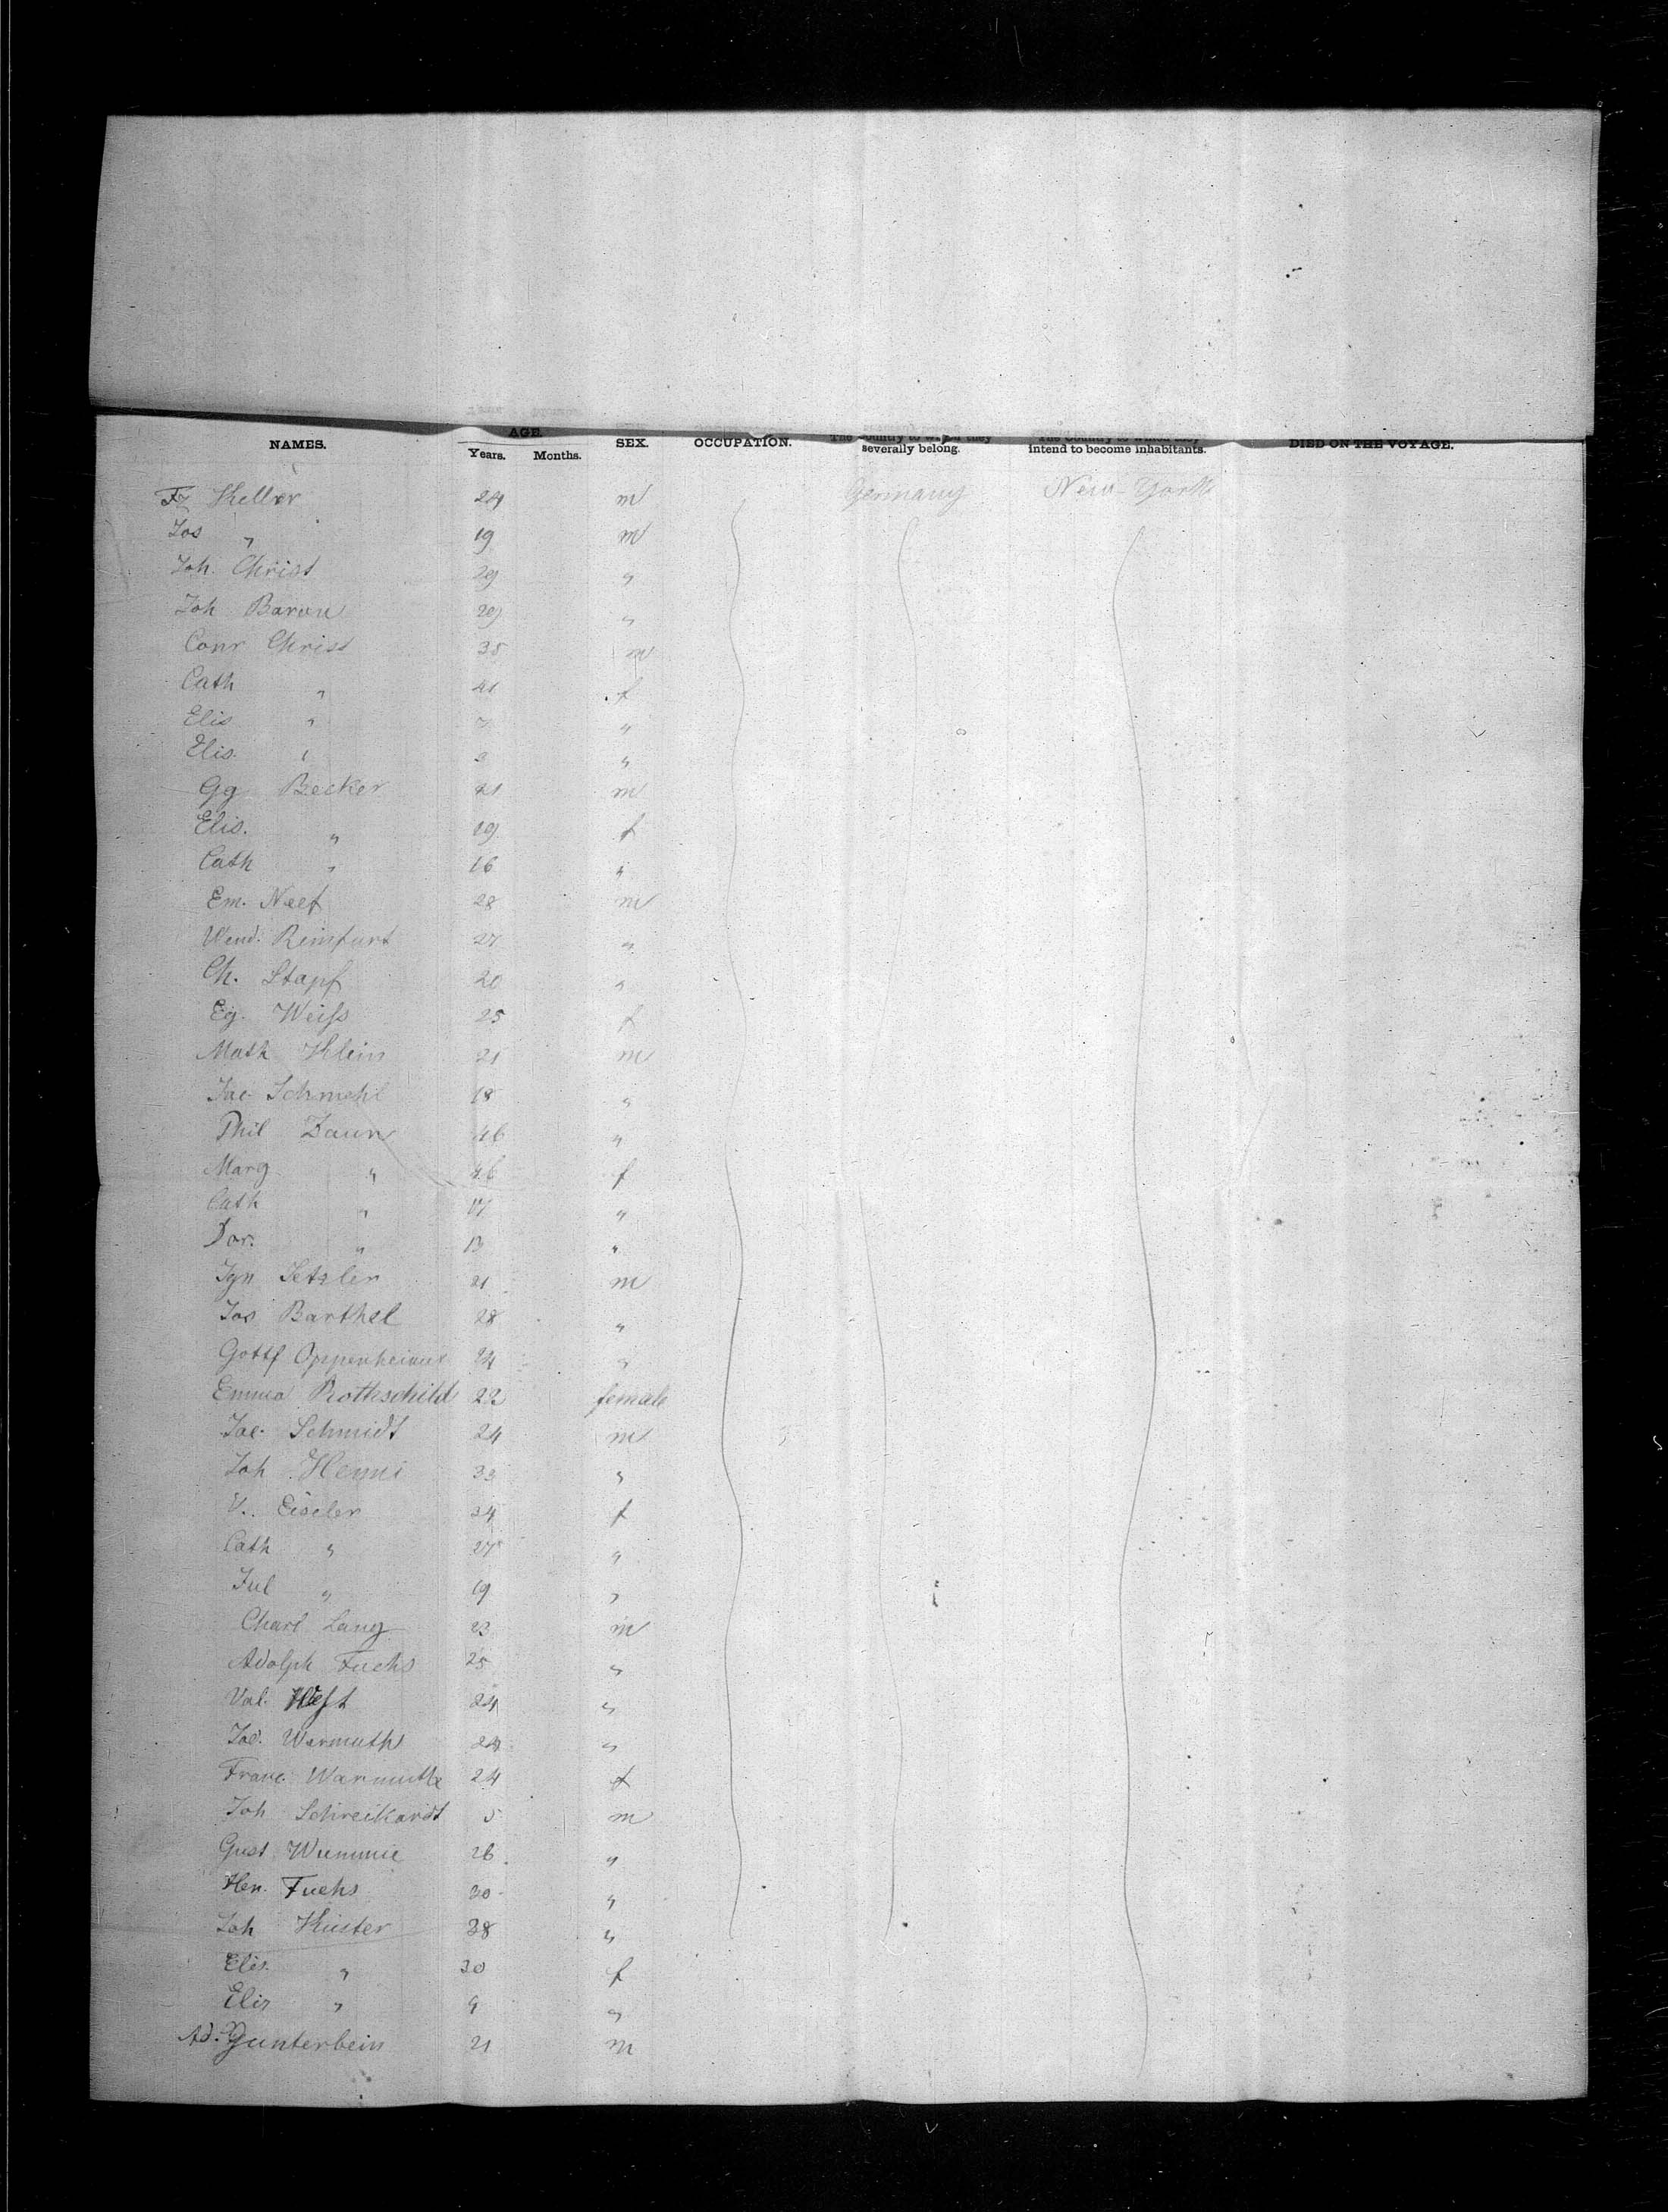 NAMES. AGE. Years. Months. SEX. OCCUPATION. The Country to which they severally belong. The Country to which they intend to become inhabitants. DIED ON THE VOYAGE.
Fz Keller 24 m Germany New-York
Jos " 19 m
Joh. Christ 29 "
Joh Baron 29 "
Conr Christ 35 m
Cath " 41 f
Elis " 7 "
Elis. " "
Gg Becker 21 m
Elis. " 19 f
Cath " 16 "
Em. Neef 28 m
Wend. Reinfurt 27 "
Ch. Stapf 20 "
Eg. Weifs 25 f
Math Klein 21 m
Jac Schmehl 18 "
Phil Daun 46 "
Marg " 46 f
Cath " 17 "
Dor. " 13 "
Ign Setzler 21 m
Jos Barthel 28 "
Gottf Oppenheimer 24 "
Emma Rothschild 22 female
Jac. Schmidt 24 m
Joh Henni 33 "
V.. Eiseler 34 f
Cath " 27 "
Jul " 19 "
Charl Lang 23 m
Adolph Fuchs 25 "
Val. 24 "
Jac. Warmuth 24 "
Franc. Warmuth 24 f
Joh Schreikardt 5 m
Gust Wummie 26 "
Hen. Fuchs 30 "
Joh Küster 38 "
Elis. " 30 f
Elis " 9 "
Ad. Gunterbein 21 m